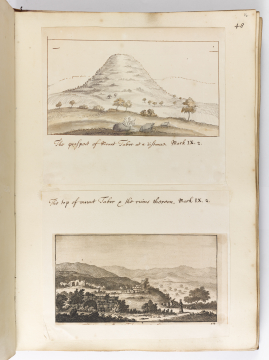 48
The prospect of Mount Tabor at a distance Mark IX. 2.
The top of mount Tabor & the ruines thereon, Mark IX. 2.